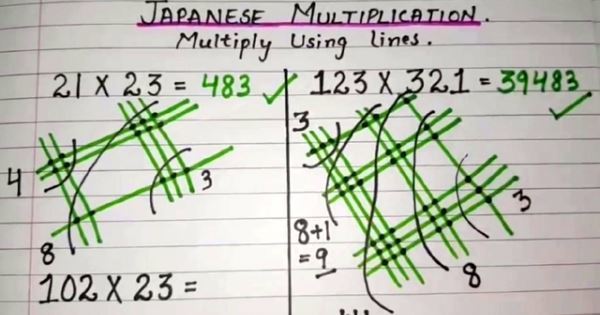 JAPANESE MULTIPLICATION.
Multiply Using lines.
21 X 23 = 483 ✓
4
3
8
102 X 23 =
123 X 321 = 39483 ✓
3
8+1
= 9
8
3